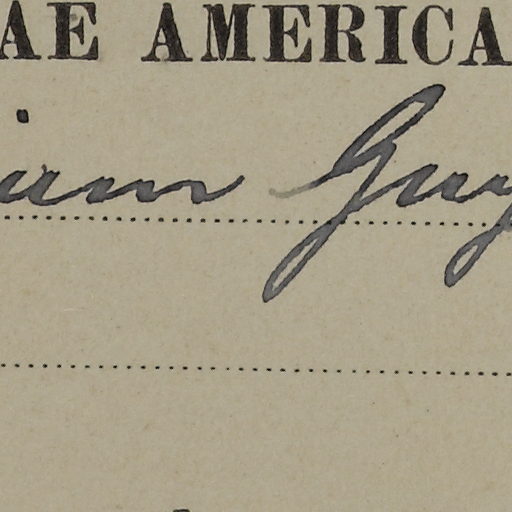 AE AMERICA
iam Guy